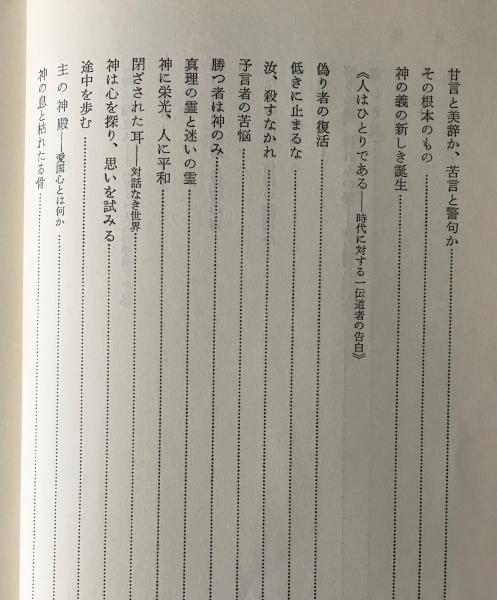 甘言と美辞か、苦言と警句か
その根本のもの
神の義の新しき誕生
《人はひとりである——時代に対する一伝道者の告白》
偽り者の復活
低きに止まるな
汝、殺すなかれ
予言者の苦悩
勝つ者は神のみ
真理の霊と迷いの霊
神に栄光、人に平和
閉ざされた耳——対話なき世界
神は心を探り、思いを試みる
途中を歩む
主の神殿——愛国心とは何か
神の息と枯れたる骨